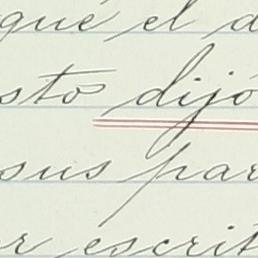 qué el d
sto dijo
sus par
r escrit